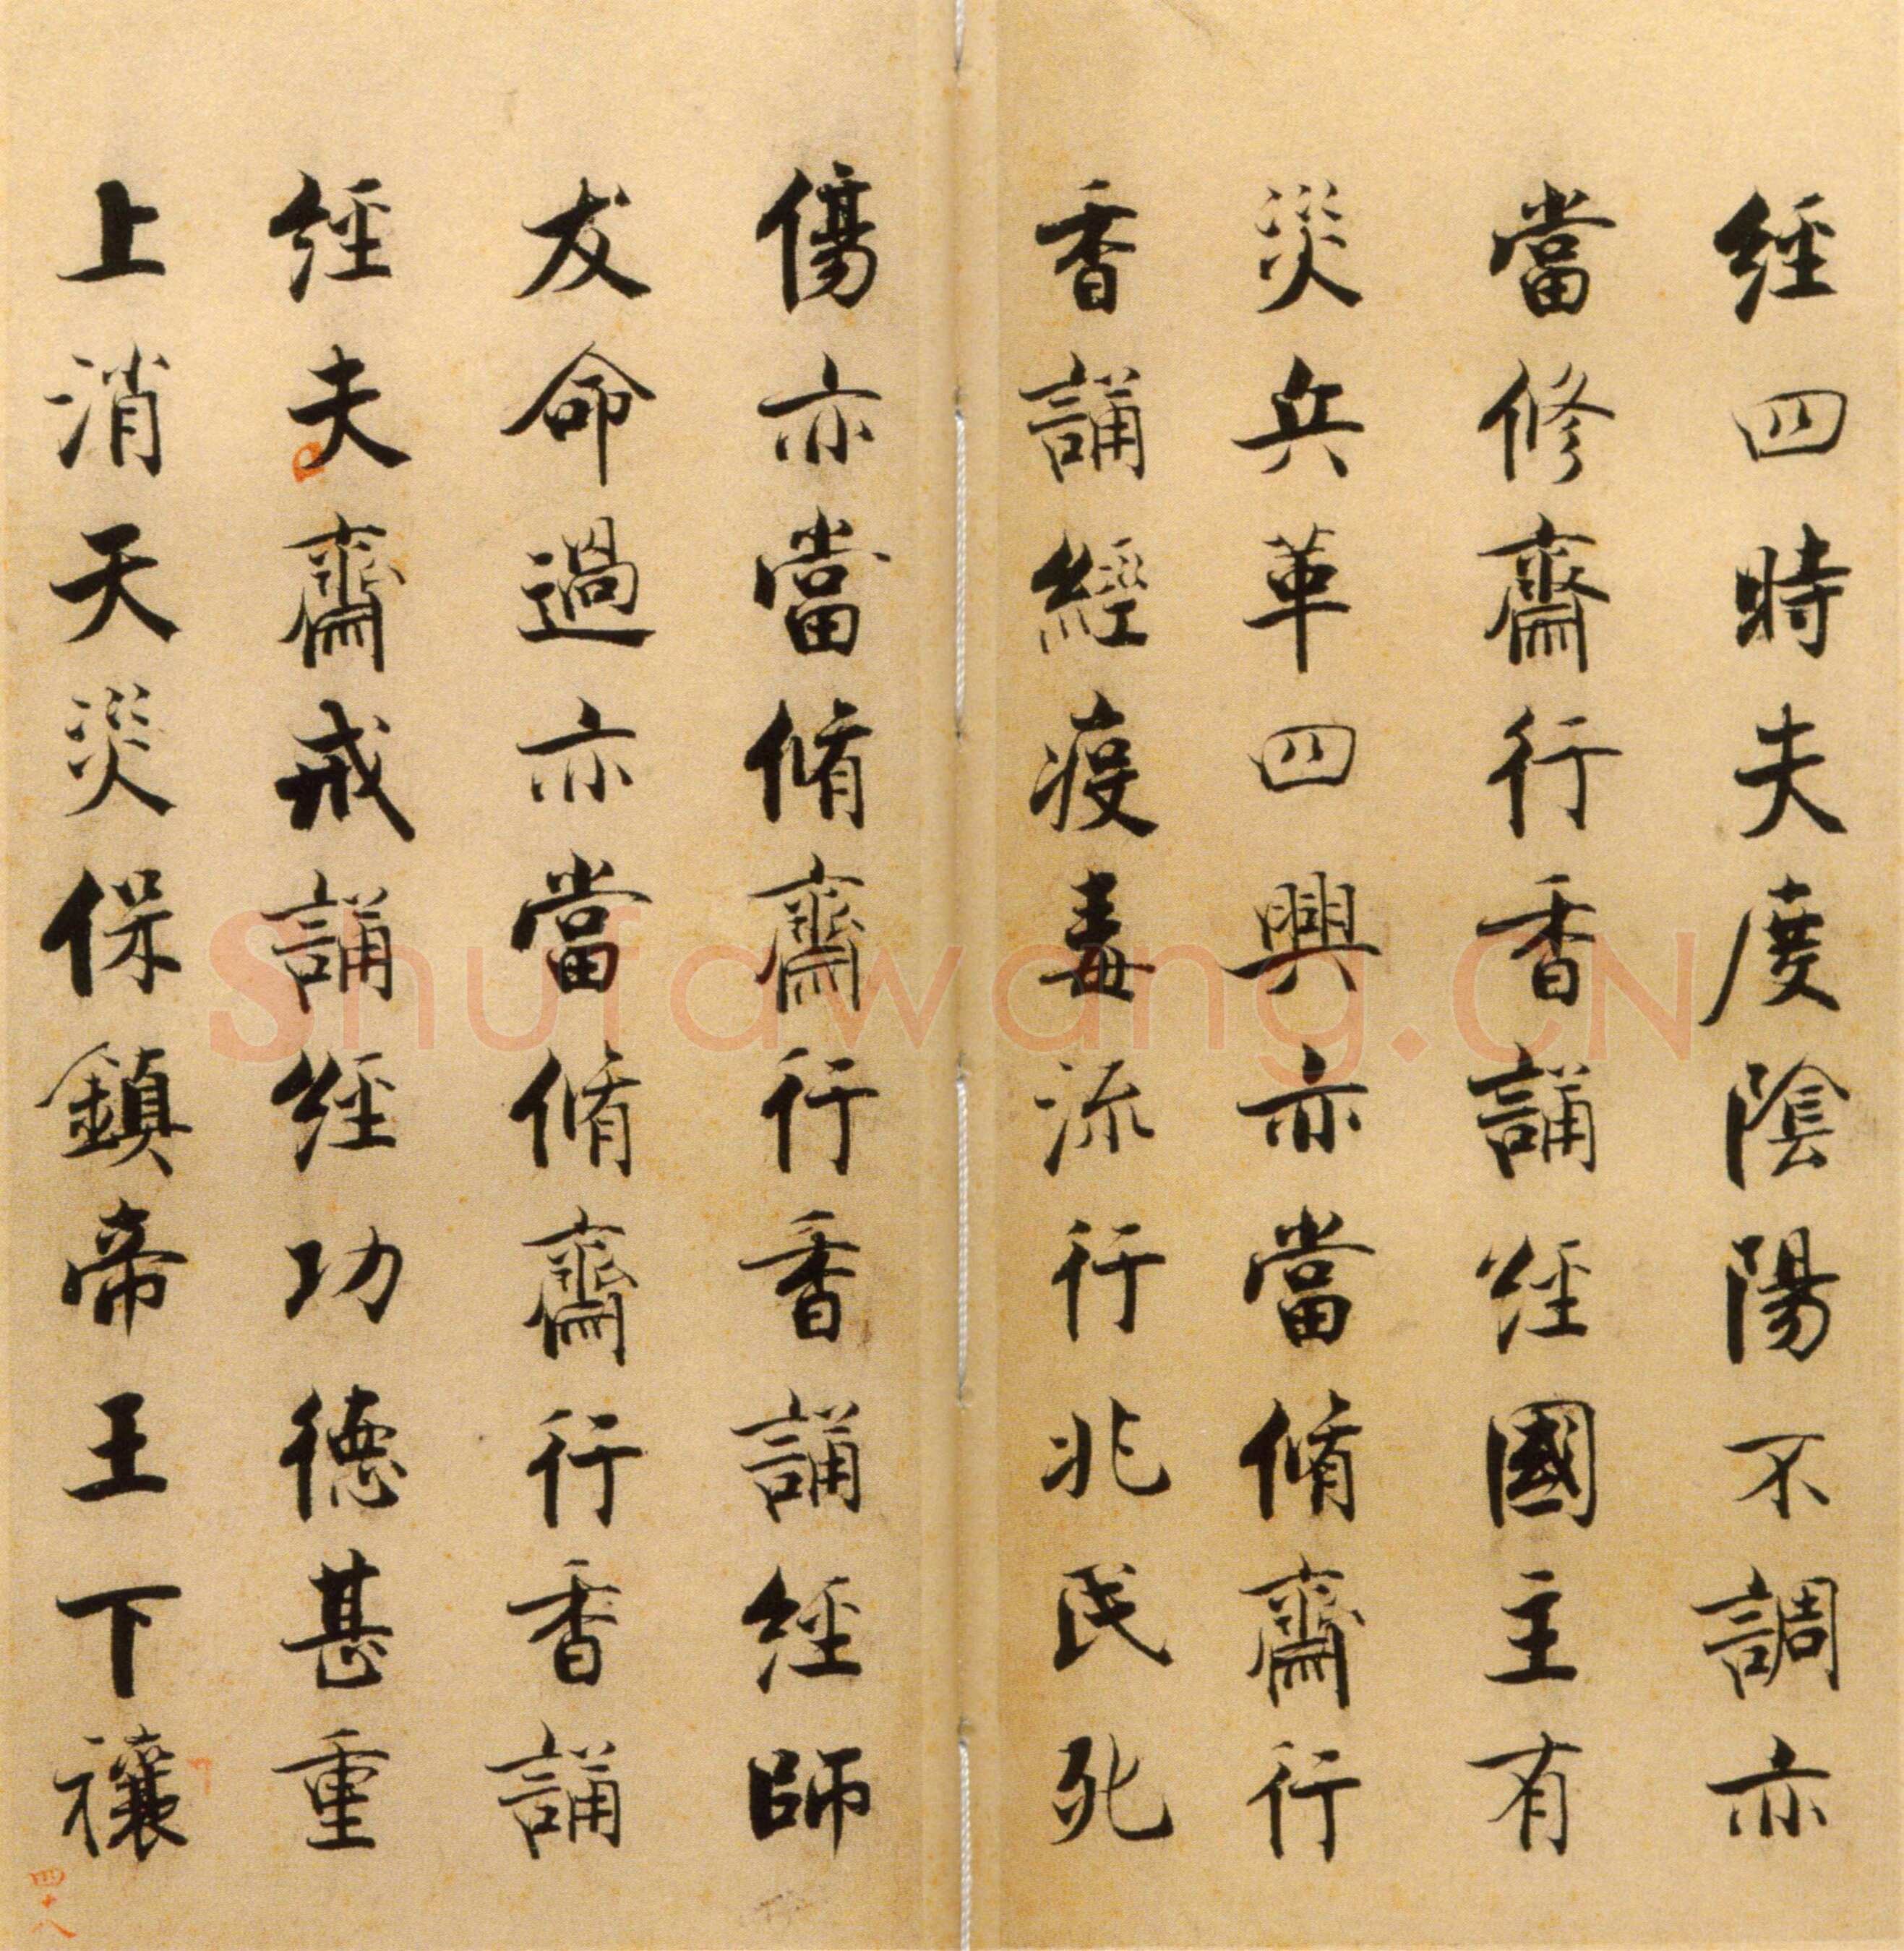 經四時失度陰陽不調亦
當修齋行香誦經國主有
災兵革四興亦當脩齋行
香誦經疫毒流行兆民死
傷亦當脩齋行香誦經師
友命過亦當脩齋行香誦
經夫齋戒誦經功德甚重
上消天災保鎮帝王下禳
四十八
Shufawang.CN